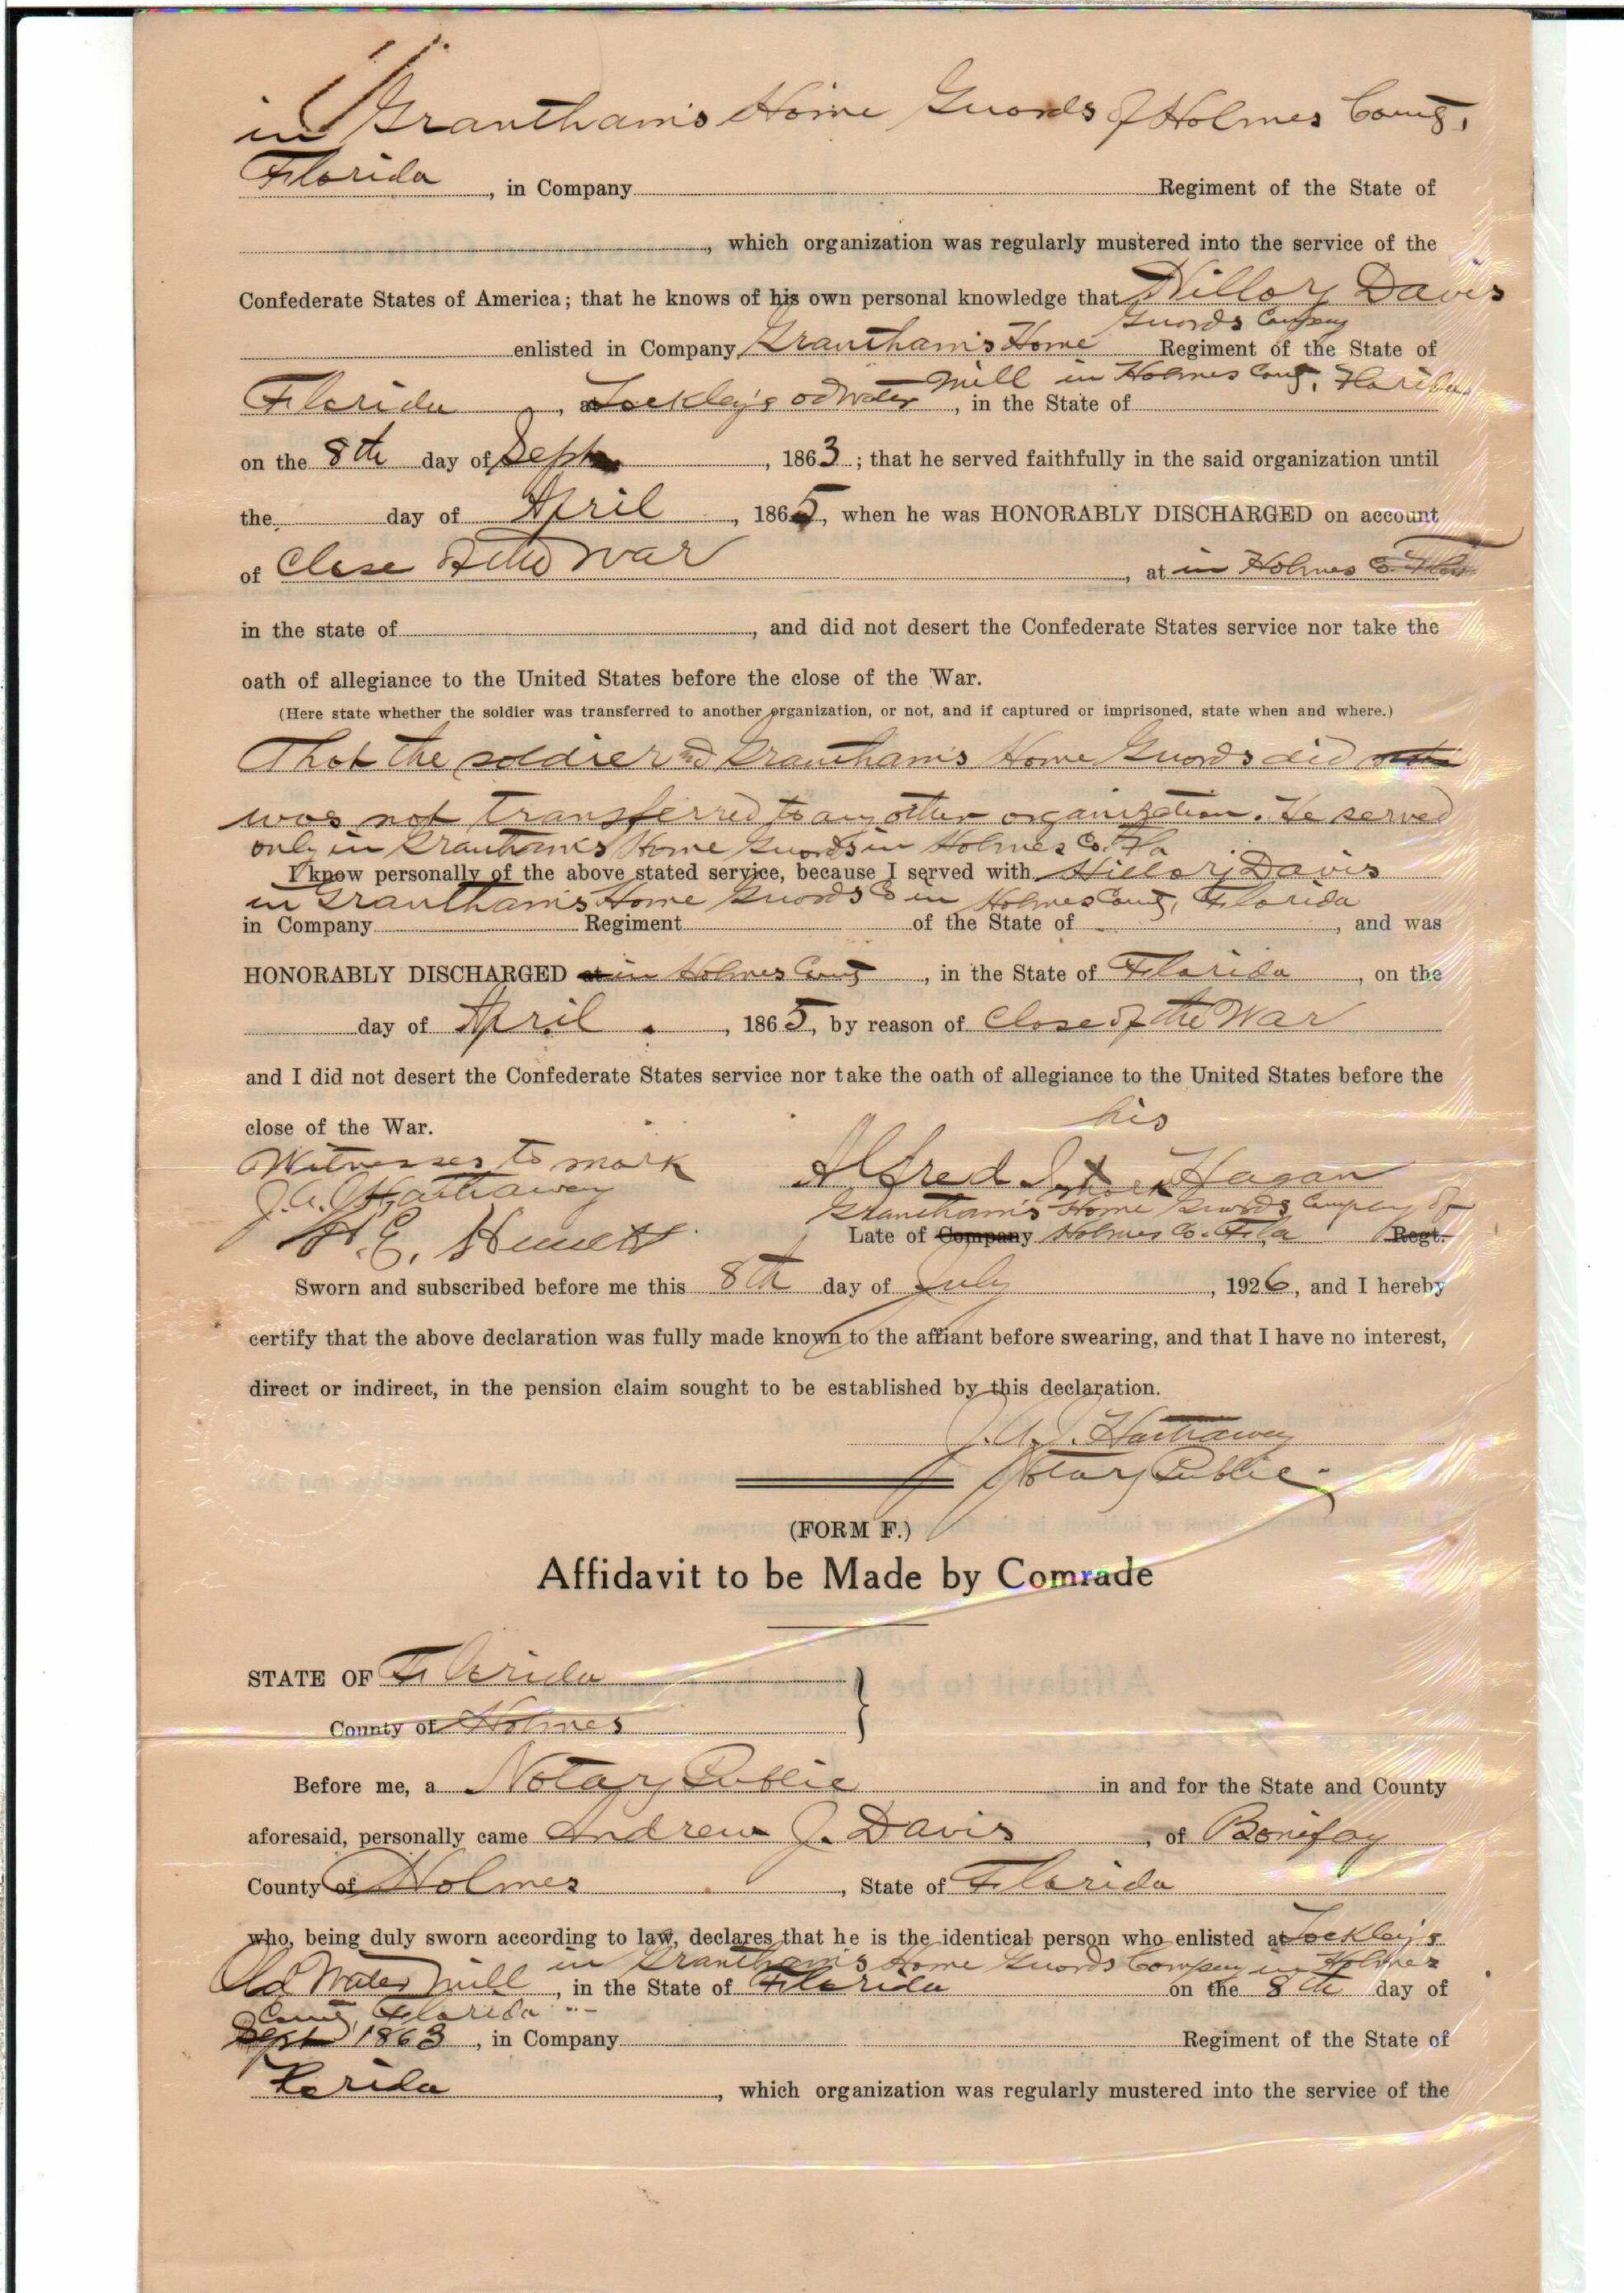 in Grantham's Home Guards of Holmes County,
Florida, in Company Regiment of the State of
, which organization was regularly mustered into the service of the
Confederate States of America; that he knows of his own personal knowledge that Hillory Davis
Guards Company
enlisted in Company Grantham's Home Regiment of the State of
Florida, at Lockley's old Water Mill in Holmes County, Florida, in the State of
on the 8th day of Sept, 1863; that he served faithfully in the said organization until
the day of April, 1865, when he was HONORABLY DISCHARGED on account
of Close of the War, at in Holmes Co Fla
in the state of, and did not desert the Confederate States service nor take the
oath of allegiance to the United States before the close of the War.
(Here state whether the soldier was transferred to another organization, or not, and if captured or imprisoned, state when and where.)
That the soldier Grantham's Home Guards did
was not transferred to any other organization. He served
only in Grantham's Home Guards in Holmes Co. Fla
I know personally of the above stated service, because I served with Hillory Davis
in Grantham's Home Guards Co in Holmes County, Florida
in Company Regiment of the State of, and was
HONORABLY DISCHARGED at in Holmes County, in the State of Florida, on the
day of April, 1865, by reason of Close of the War
and I did not desert the Confederate States service nor take the oath of allegiance to the United States before the
close of the War.
his
Witnesses to mark Alfred X Hagan
J.A.J. Hathaway mark
Grantham's Home Guards Company of
H.E. Late of Company Holmes Co. Fla Regt.
Sworn and subscribed before me this 8th day of July, 1926, and I hereby
certify that the above declaration was fully made known to the affiant before swearing, and that I have no interest,
direct or indirect, in the pension claim sought to be established by this declaration.
J.A.J. Hathaway
Notary Public.
(FORM F.)
Affidavit to be Made by Comrade
STATE OF Florida
County of Holmes
Before me, a Notary Public in and for the State and County
aforesaid, personally came Andrew J. Davis, of Bonifay
County of Holmes, State of Florida
who, being duly sworn according to law, declares that he is the identical person who enlisted at Lockley's
in Grantham's Home Guards Company in Holmes
Old Water Mill, in the State of Florida on the 8th day of
County, Florida
Sept 1863, in Company Regiment of the State of
Florida, which organization was regularly mustered into the service of the